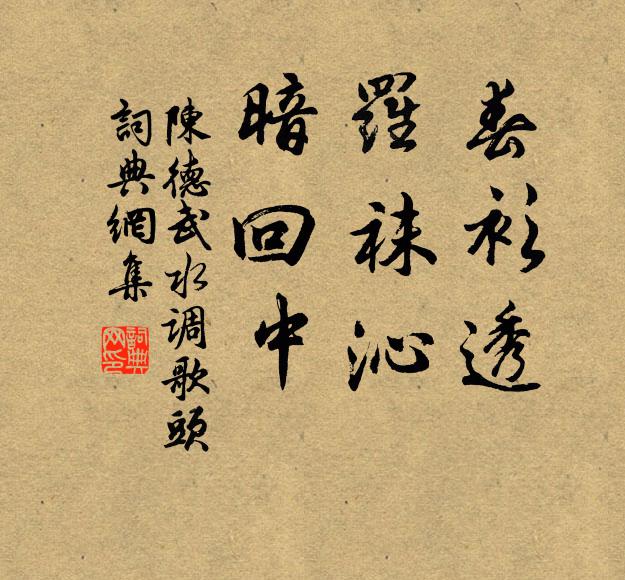 春衫透
羅袜沁
暗回中
陳德武水调歌頭
詞典網集
詞典网印